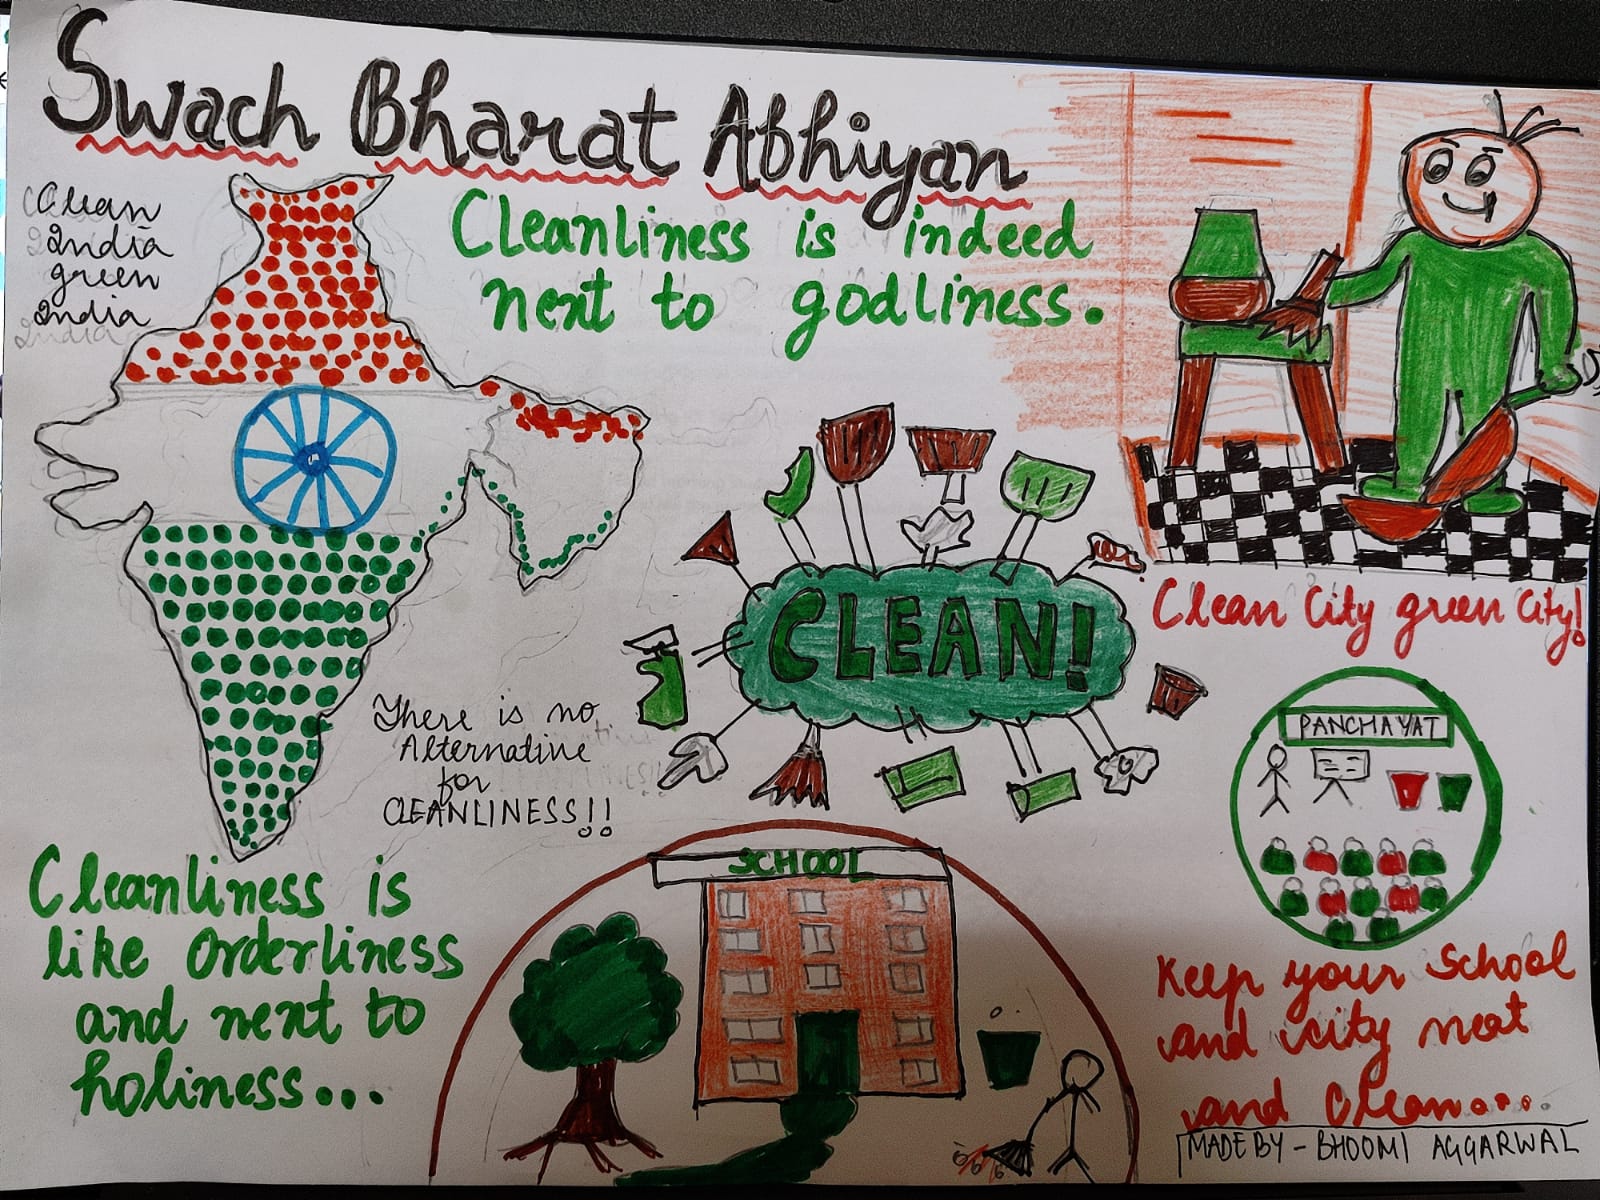 Swach Bharat Abhiyan
Clean
India
green
India
Cleanliness is indeed
next to godliness.
CLEAN!
Clean City green City!
There is no
Alternative
for
CLEANLINESS!!
PANCHAYAT
Cleanliness is
like orderliness
and next to
holiness...
SCHOOL
Keep your school
and city neat
and clean....
MADE BY - BHOOMI AGGARWAL